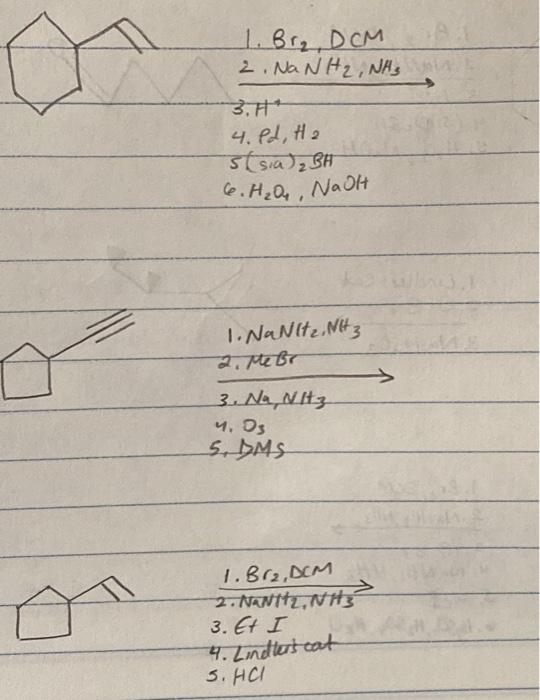 1. Br2, DCM
2. NaNH2, NH3
3. H+
4. Pd, H2
5(sia)2BH
6. H2O4, NaOH
1. NaNH2, NH3
2. MeBr
3. Na, NH3
4. O3
5. DMS
1. Br2, DCM
2. NaNH2, NH3
3. Et I
4. Lindlers cat
5. HCl